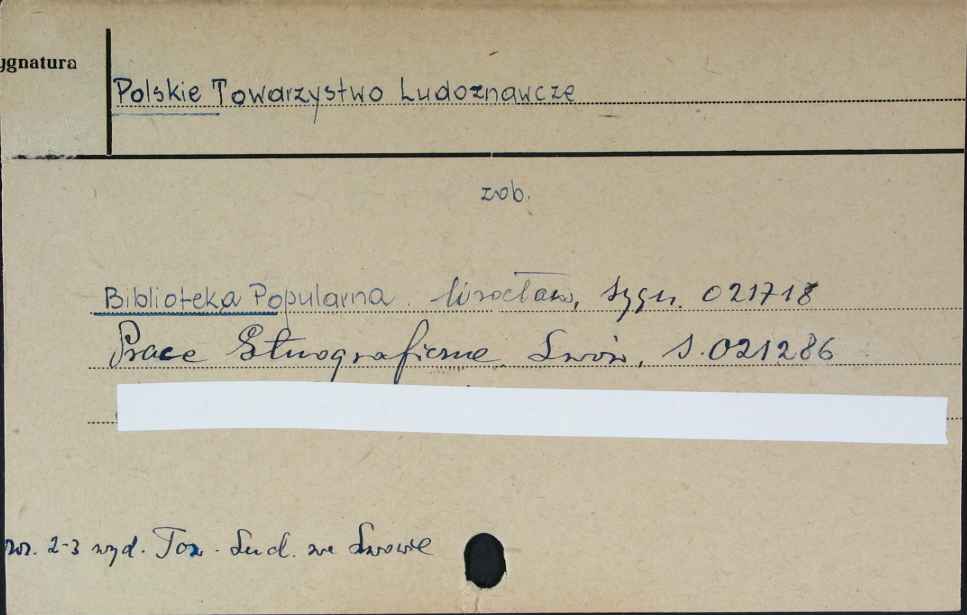 ygnatura
Polskie Towarzystwo Ludoznawcze
zob.
Biblioteka Popularna. Wrocław, sygn. 021718
Prace Etnograficzne Lwów, s. 021286
nr. 2-3 wyd. Tow. Lud. we Lwowie